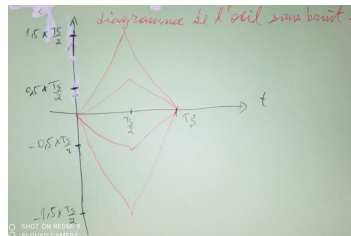 diagramme de l'oeil sans bruit.
1,5 x Ts/2
0,5 x Ts/2
t
Ts/2
-0,5 x Ts/2
-1,5 x Ts/2
SHOT ON REDMI 9
AI QUAD CAMERA